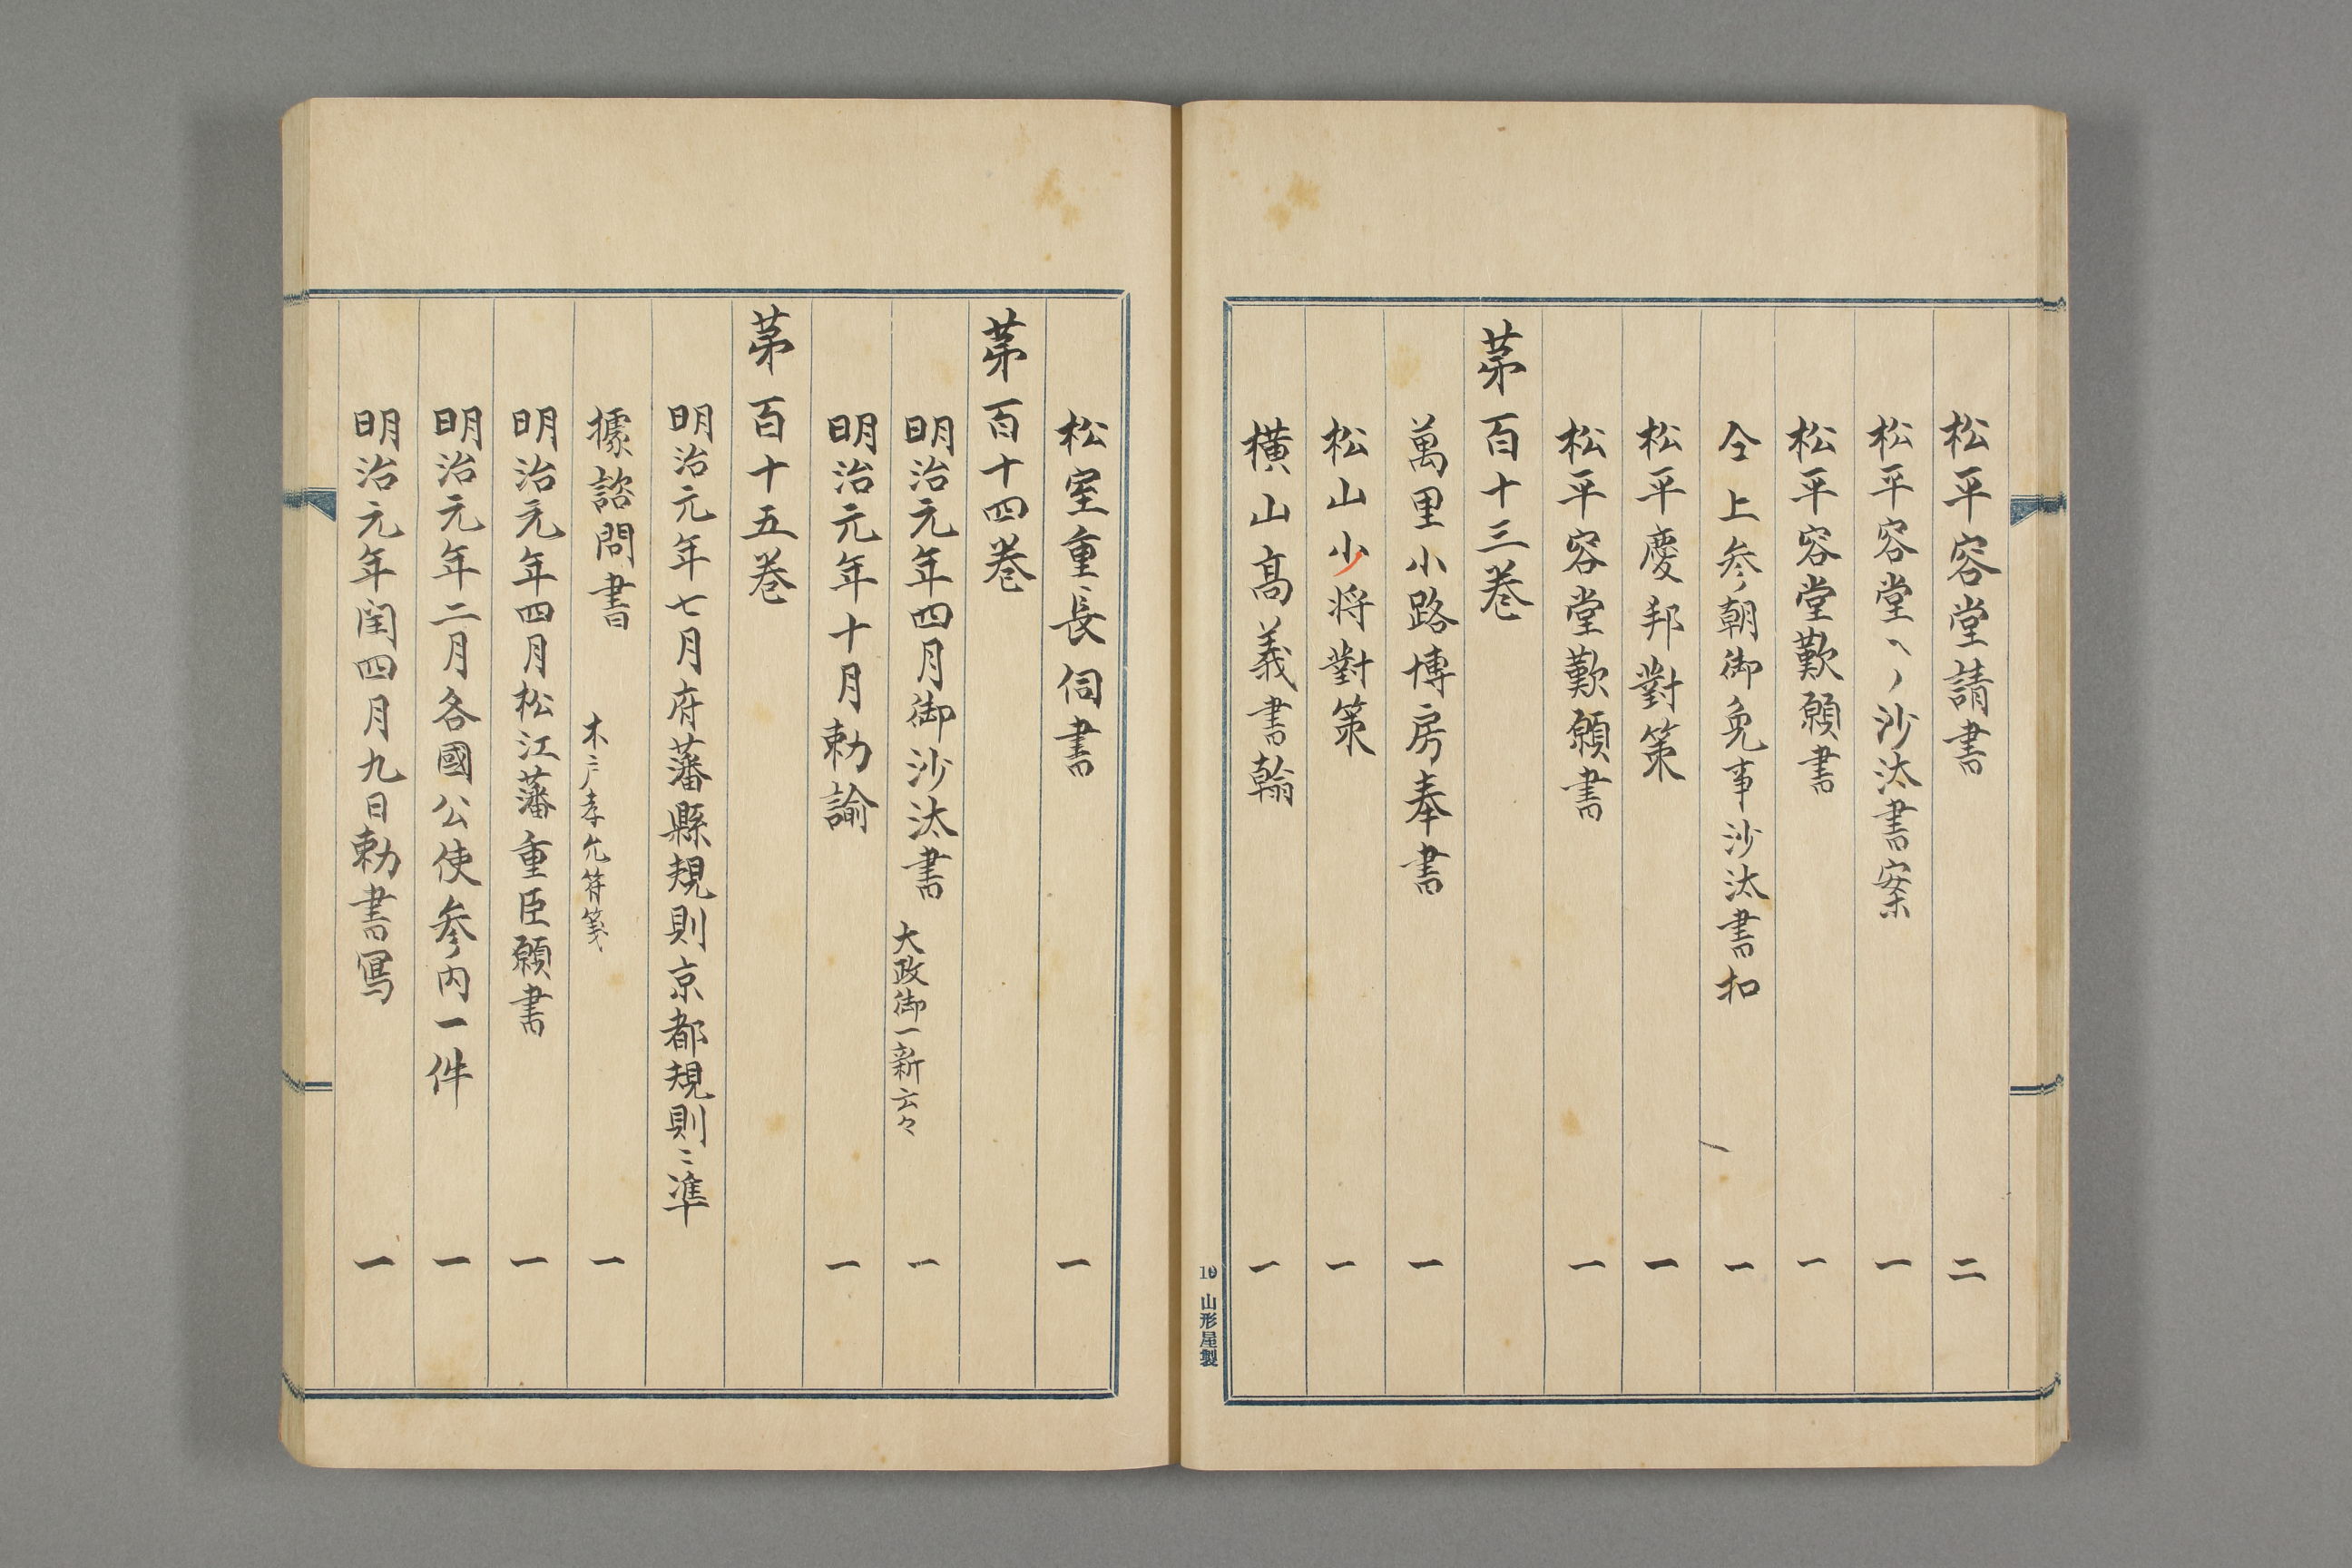 松平容堂請書 二
松平容堂へノ沙汰書案 一
松平容堂歎願書 一
仝上参朝御免事沙汰書扣 一
松平慶邦對策 一
松平容堂歎願書 一
苐百十三巻
萬里小路博房奉書 一
松山少将對策 一
横山髙義書翰 一
10 山形屋製
松室重長伺書 一
苐百十四巻
明治元年四月御沙汰書 大政御一新云々 一
明治元年十月勅諭 一
苐百十五巻
明治元年七月府藩縣規則京都規則ニ準
據諮問書 木戸孝允符箋 一
明治元年四月松江藩重臣願書 一
明治元年二月各國公使参内一件 一
明治元年閏四月九日勅書冩 一